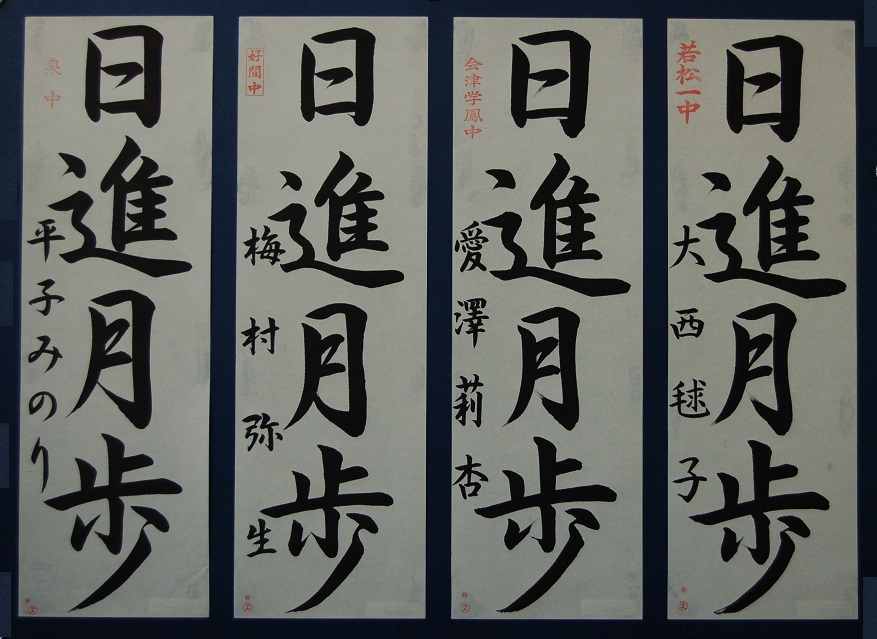 若松一中
日進月歩
大西毬子
会津学鳳中
日進月歩
愛澤莉杏
好間中
日進月歩
梅村弥生
泉中
日進月歩
平子みのり